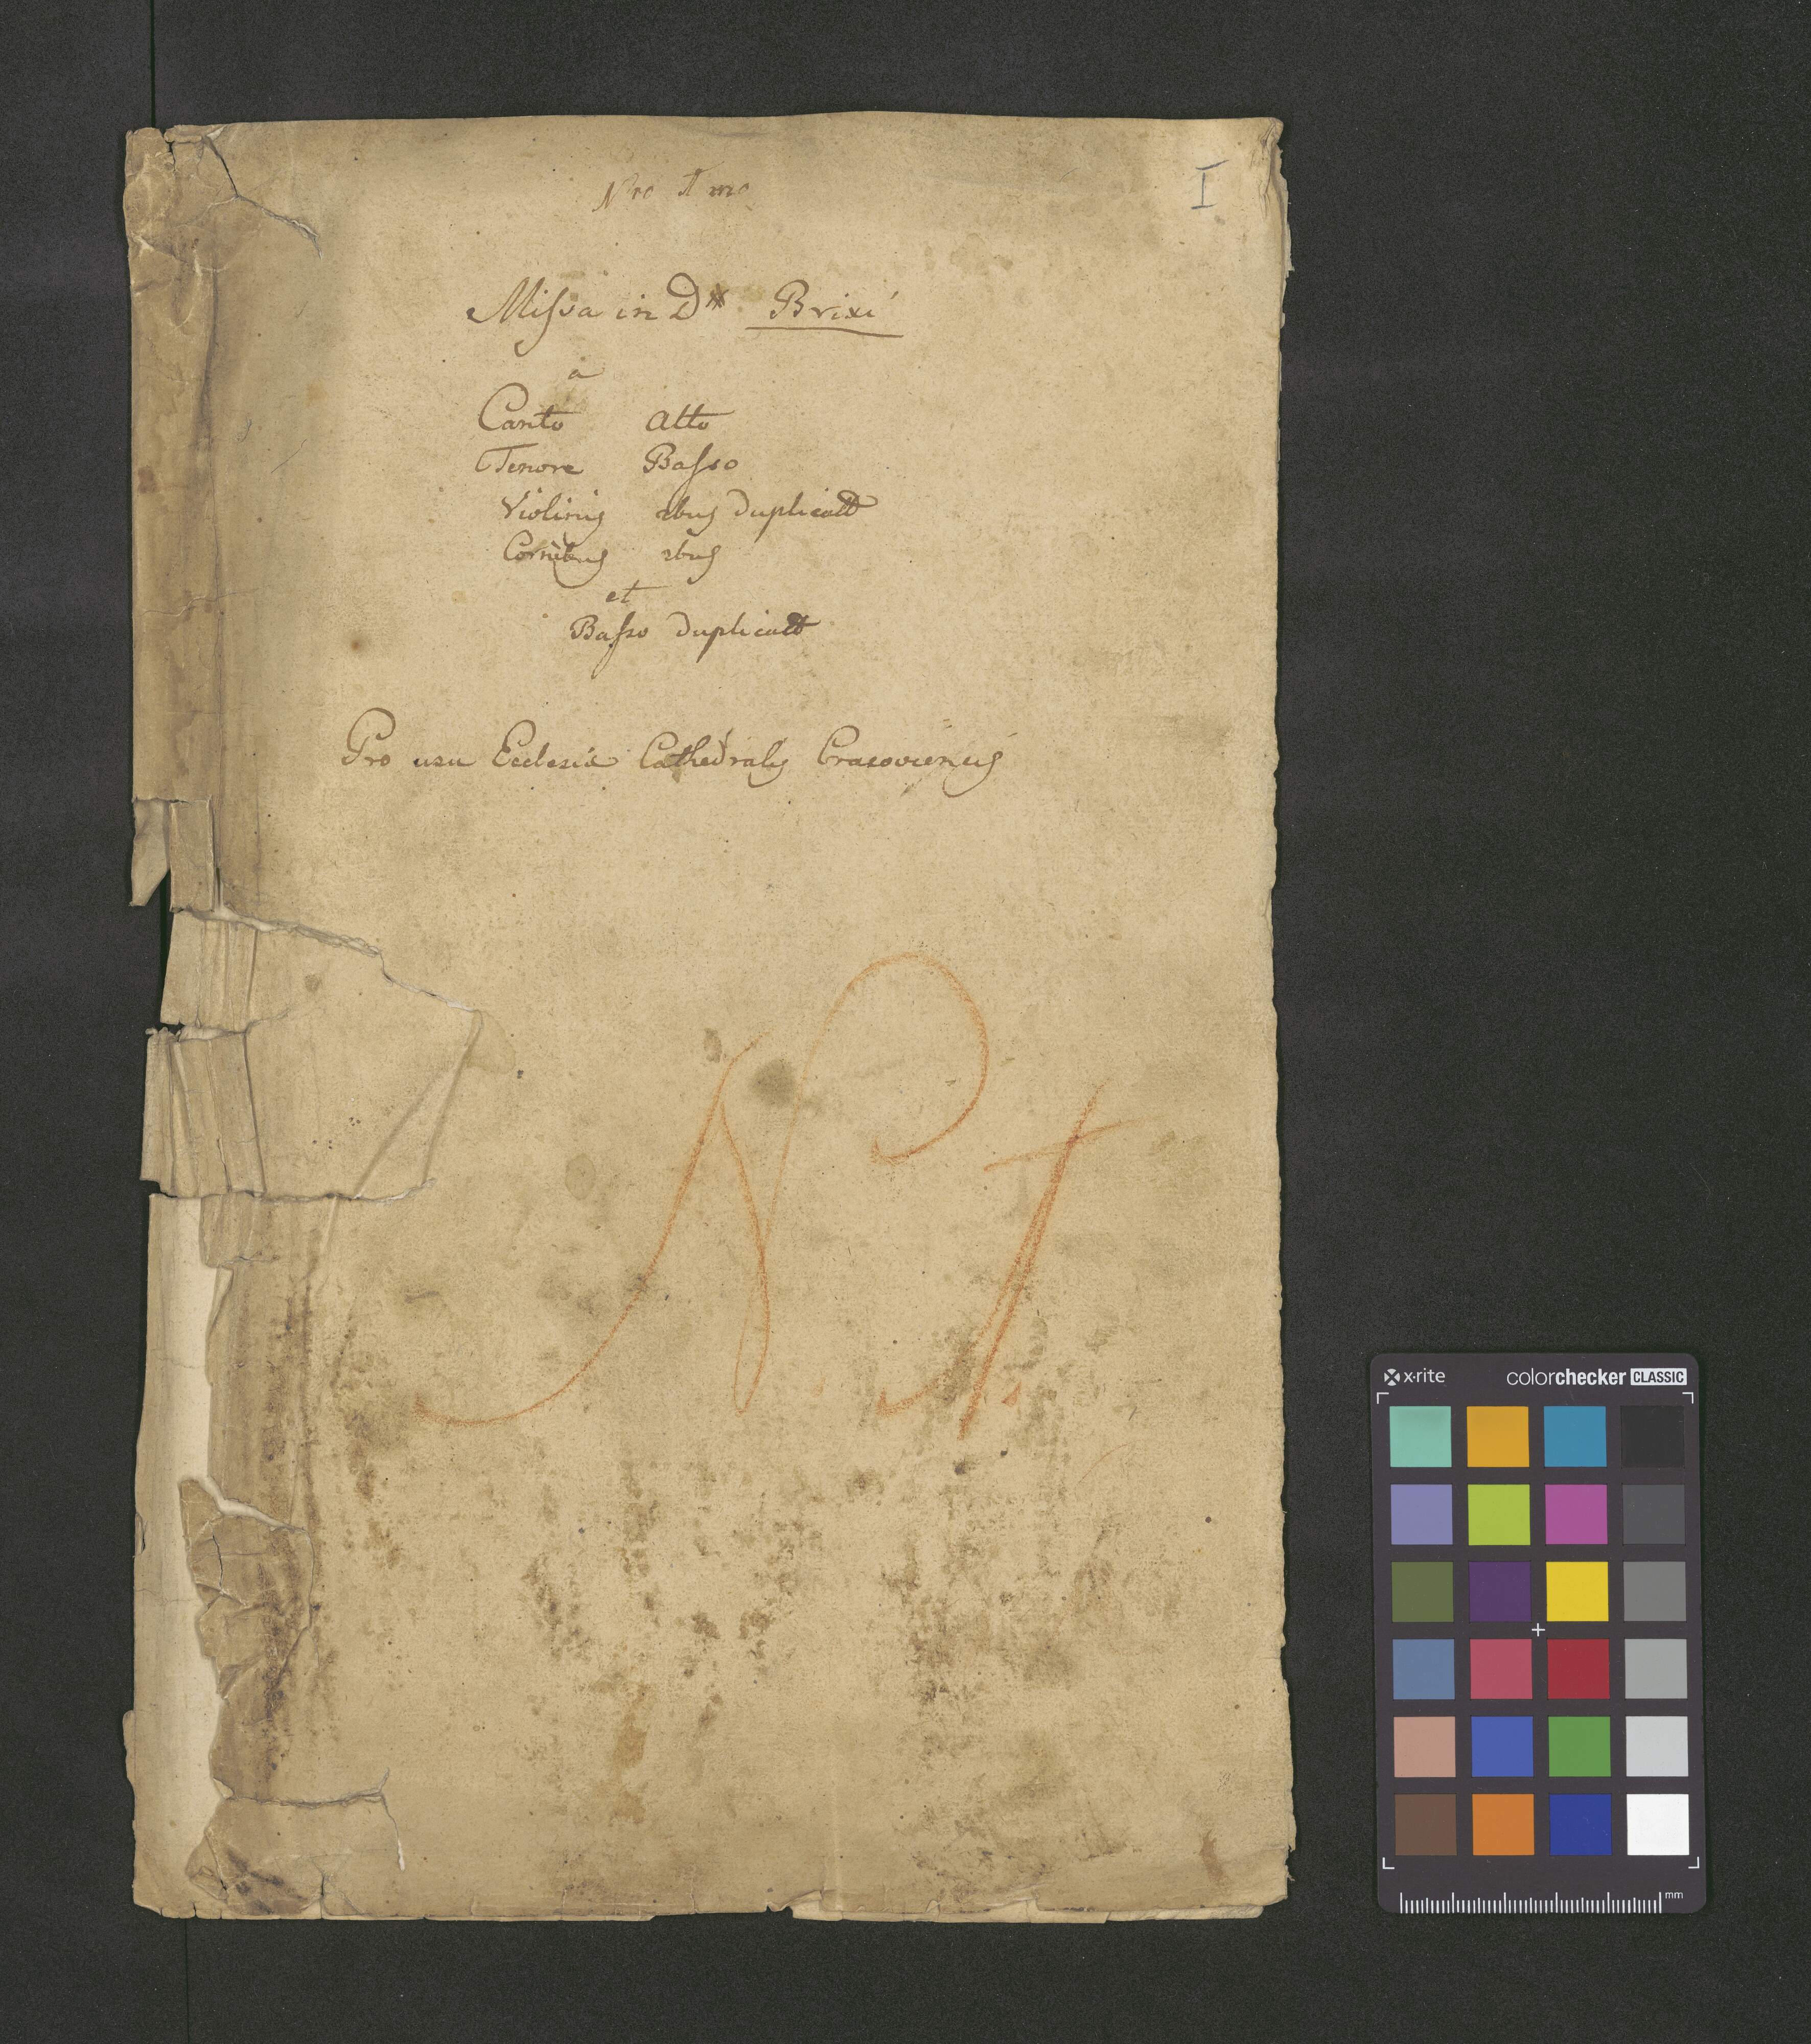 Nro 1mo
I
Missa in D# Brixi
a
Canto Alto
Tenore Basso
Violinis 2bus duplicatt
Cornibus 2bus
et
Basso duplicatt
Pro usu Ecclesiæ Cathedralis Cracoviensis
N 1.
x-rite colorchecker CLASSIC
mm